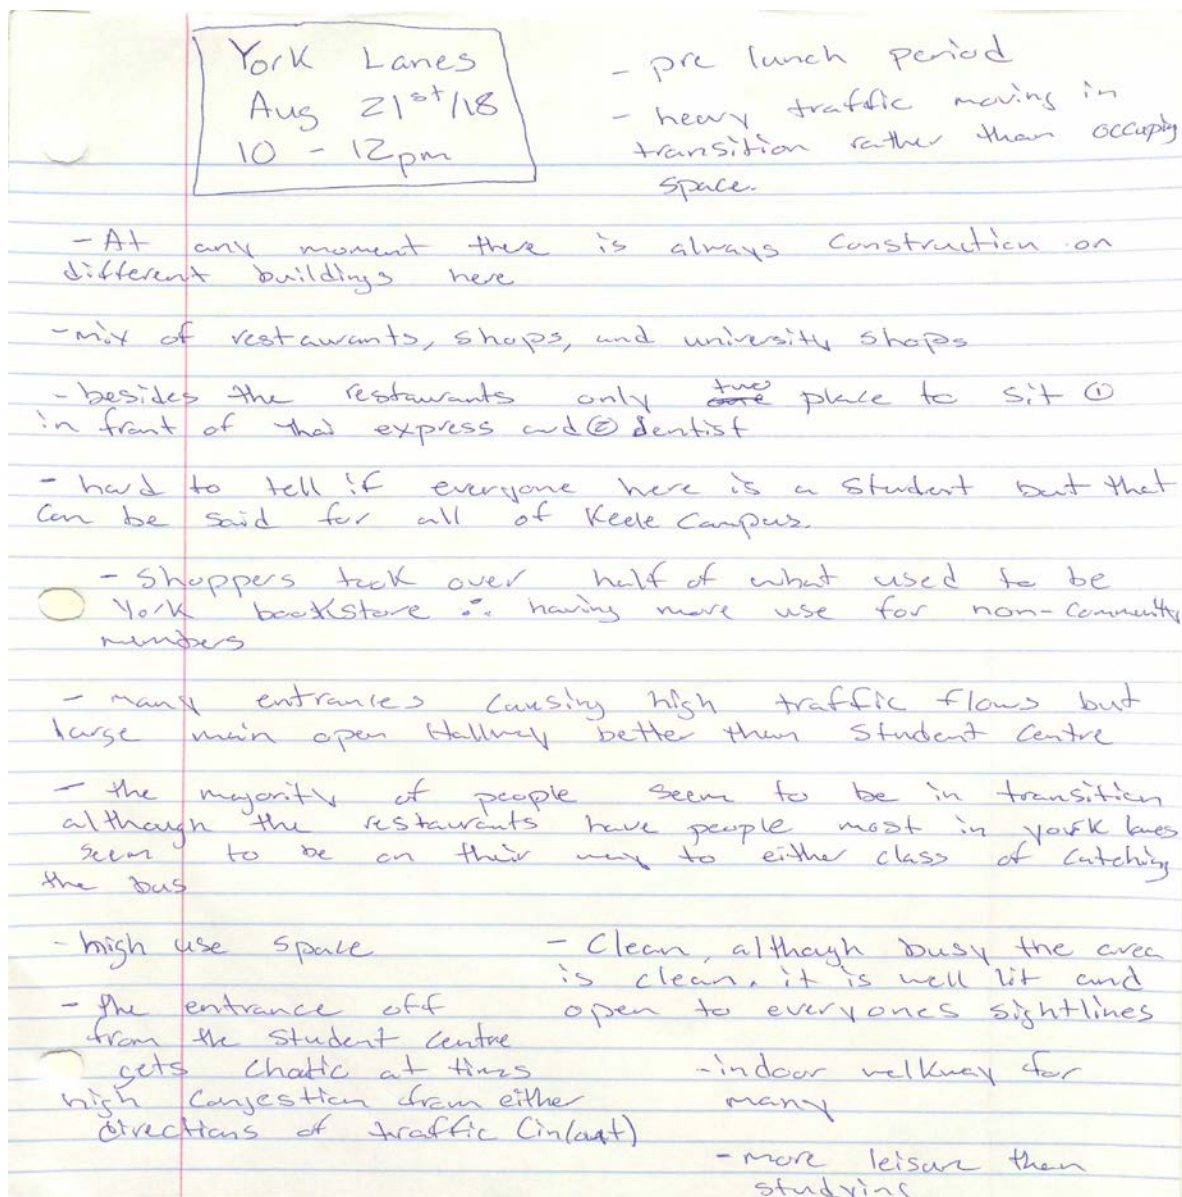 York Lanes
Aug 21st/18
10 - 12pm
- pre lunch period
- heavy traffic moving in
transition rather than occupig
space.
- At any moment there is always construction on
different buildings here
- mix of restaurants, shops, and university shops
- besides the restaurants only two place to sit ①
in front of thai express and ② dentist
- hard to tell if everyone here is a student but that
can be said for all of Keele Campus.
- Shoppers took over half of what used to be
York bookstore ∴ having more use for non-community
members
- many entrances causing high traffic flows but
large main open Hallway better than Student Centre
- the majority of people seem to be in transition
although the restaurants have people most in york lanes
seem to be on their way to either class of catching
the bus
- high use space
- the entrance off
from the Student Centre
gets chatic at times
high congestion from either
directions of traffic (in/out)
- Clean, although busy the area
is clean. it is well lit and
open to everyones sightlines
- indoor walkway for
many
- more leisure then
studying